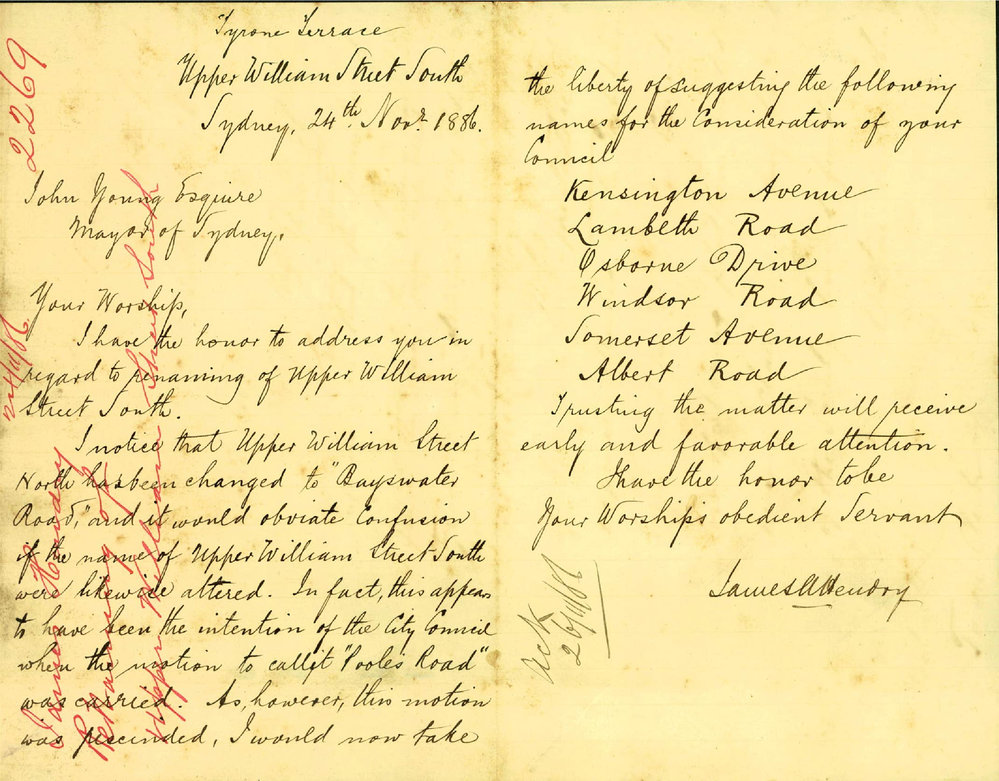 Tyrone Terrace
Upper William Street South
Sydney, 24th Novr. 1886.
John Young Esquire
Mayor of Sydney,
Your Worship,
I have the honor to address you in
regard to renaming of Upper William
Street South.
I notice that Upper William Street
North has been changed to "Bayswater
Road," and it would obviate Confusion
if the name of Upper William Street South
were likewise altered. In fact, this appears
to have been the intention of the City Council
when the motion to call it "Poole's Road"
was carried. As, however, this motion
was rescinded, I would now take
the liberty of suggesting the following
names for the Consideration of your
Council
Kensington Avenue
Lambeth Road
Osborne Drive
Windsor Road
Somerset Avenue
Albert Road
Trusting the matter will receive
early and favorable attention.
I have the honor to be
Your Worships obedient Servant
James A Hendry
Ack
26/11/86
2269
24/11/86
James Hendry
Renaming of
Upper William Street South